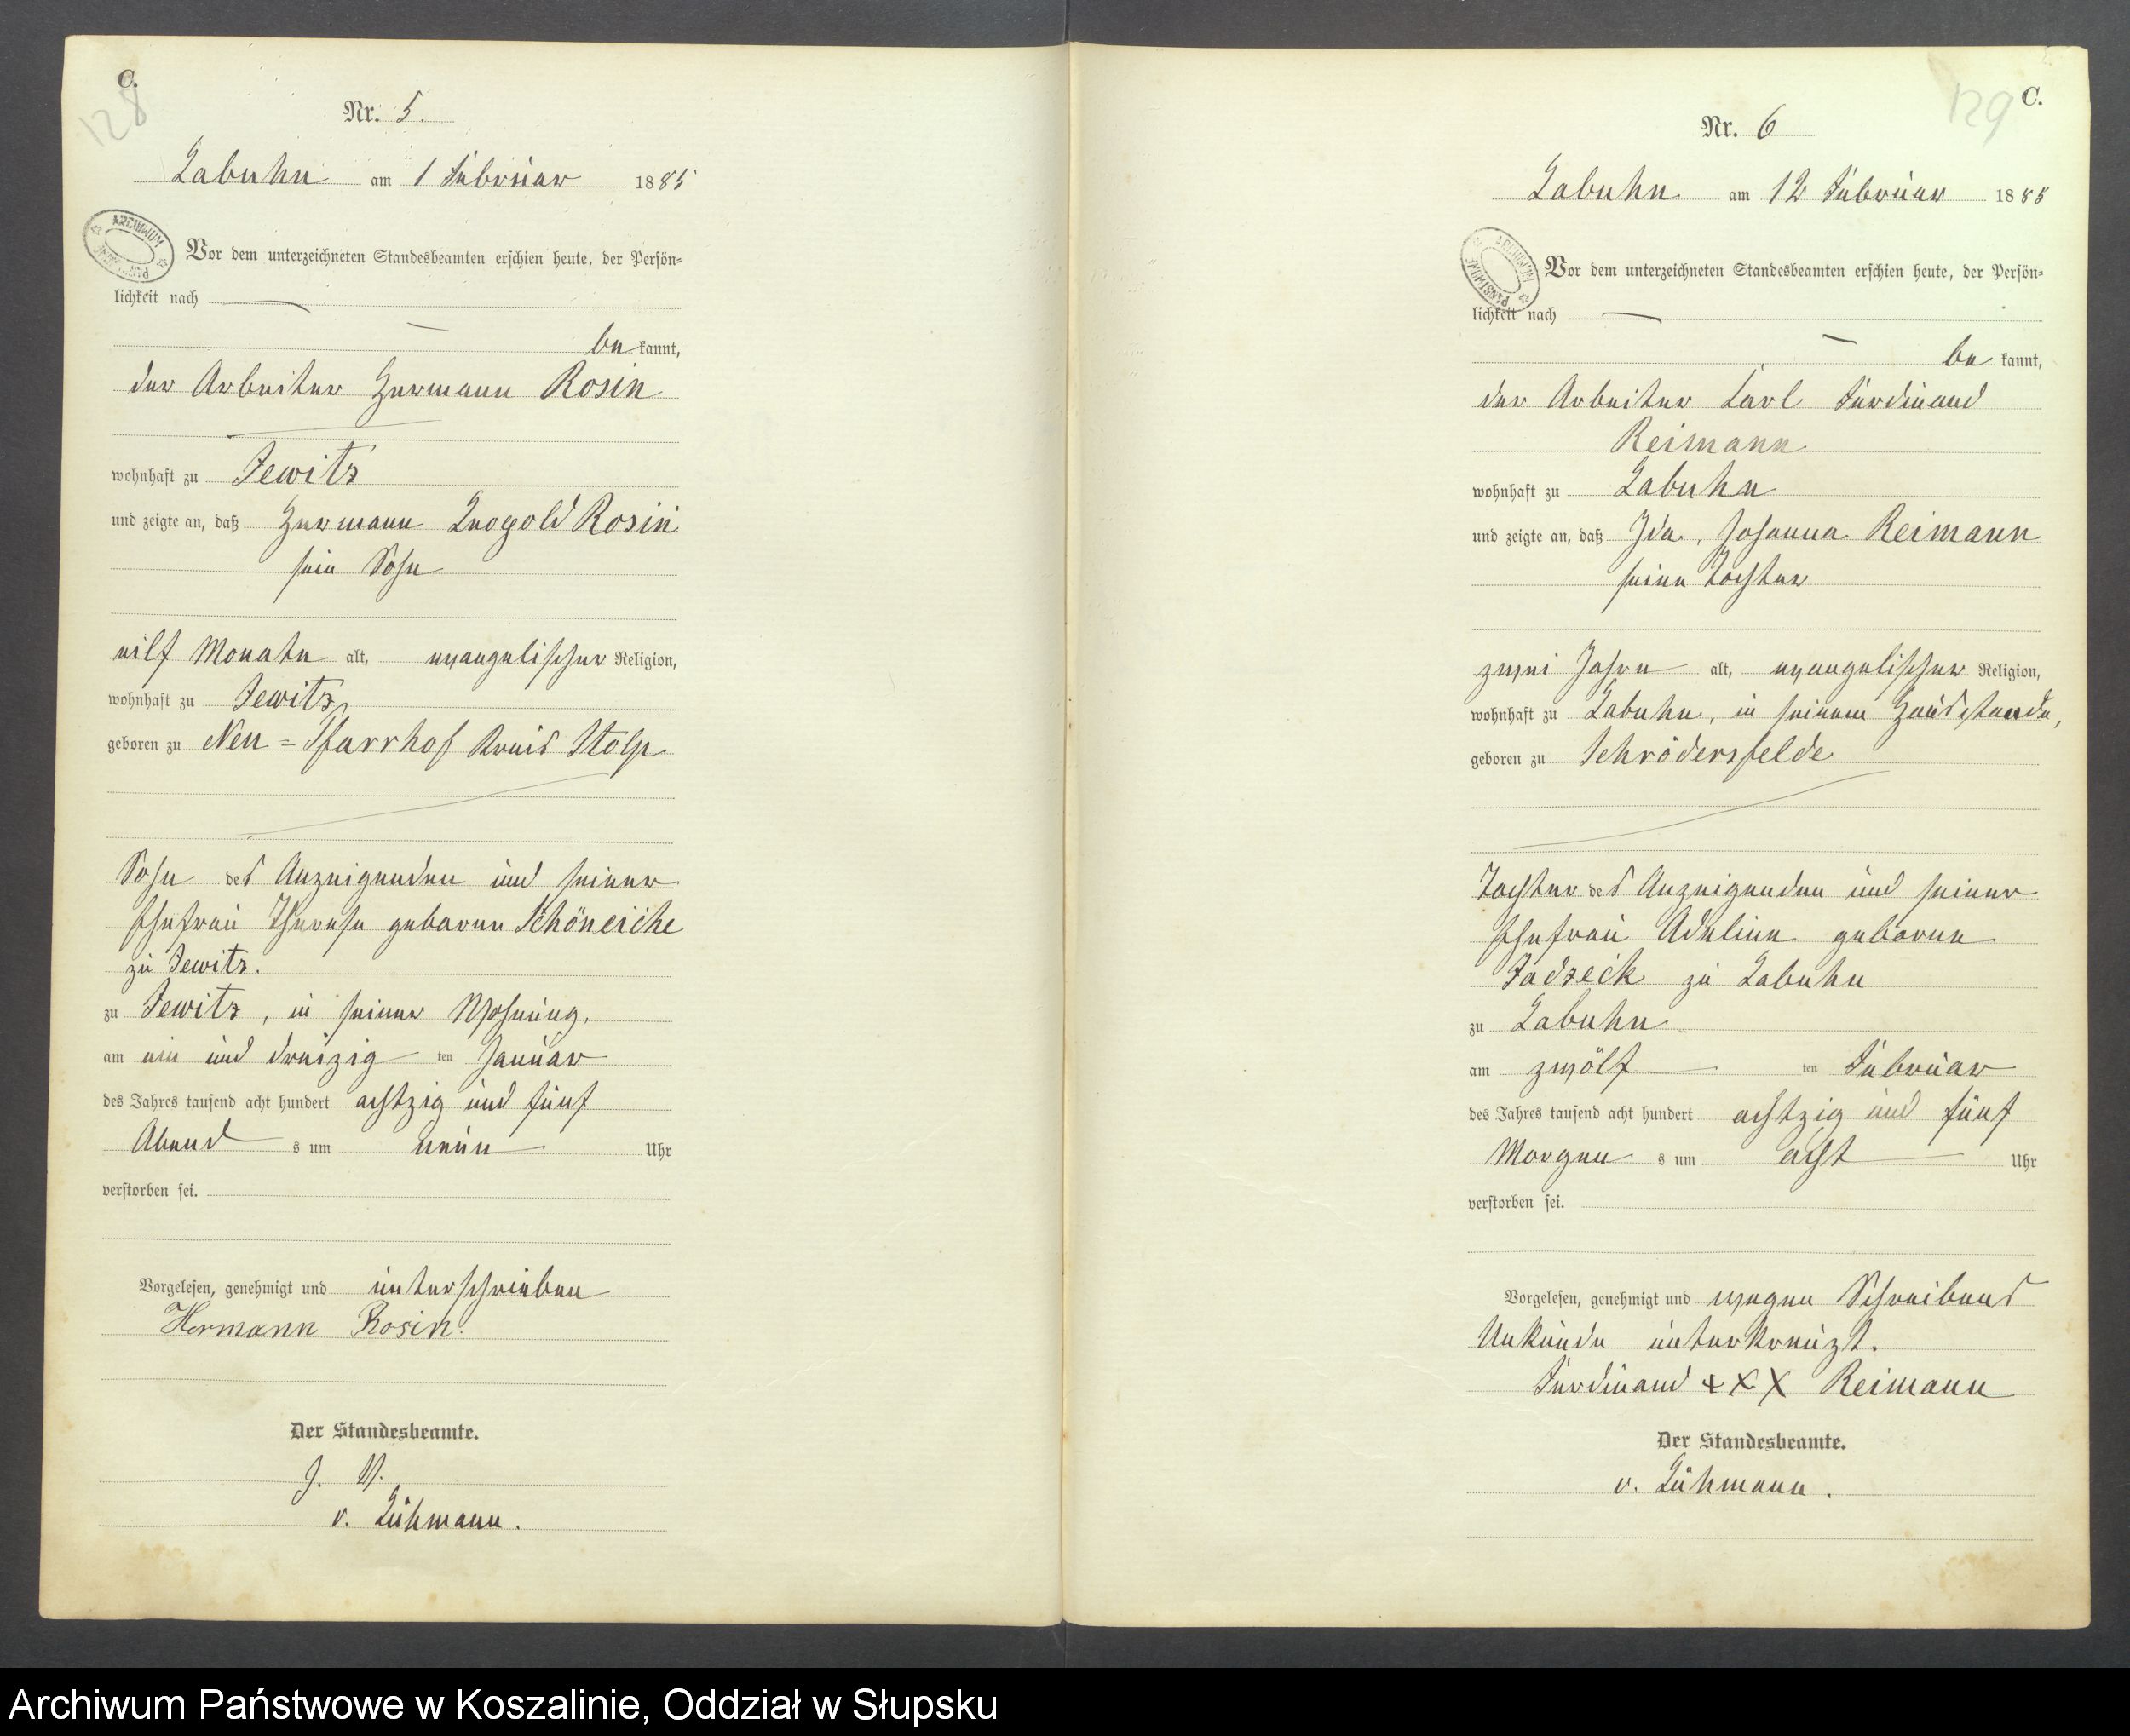 C.
128
Nr. 5.
Labuhn am 1 Februar 1885
ARCHIWUM
Vor dem unterzeichneten Standesbeamten erschien heute, der Persön-
lichkeit nach
be kannt,
der Arbeiter Hermann Rosin
wohnhaft zu Jewitz
und zeigte an, daß Hermann Leopold Rosin
sein Sohn
eilf Monate alt, evangelischer Religion,
wohnhaft zu Jewitz,
geboren zu Neu-Pfarrhof Kreis Stolp
Sohn des Anzeigenden und seiner
Ehefrau Therese geborene Schöneiche
zu Jewitz.
zu Jewitz, in seiner Wohnung,
am ein und dreizig ten Januar
des Jahres tausend acht hundert achtzig und fünf
Abend s um neun Uhr
verstorben sei.
Vorgelesen, genehmigt und unterschrieben
Hermann Rosin.
Der Standesbeamte.
J. V.
v. Lühmann.
C.
129
Nr. 6
Labuhn am 12 Februar 1885
ARCHIWUM PAŃSTWOWE
Vor dem unterzeichneten Standesbeamten erschien heute, der Persön-
lichkeit nach
be kannt,
der Arbeiter Carl Ferdinand
Reimann
wohnhaft zu Labuhn
und zeigte an, daß Ida, Johanna Reimann
seine Tochter
zwei Jahre alt, evangelischer Religion,
wohnhaft zu Labuhn, in seinem Hausstande,
geboren zu Schrödersfelde
Tochter des Anzeigenden und seiner
Ehefrau Adeline geborene
Jadzeck zu Labuhn
zu Labuhn
am zwölf ten Februar
des Jahres tausend acht hundert achtzig und fünf
Morgen s um acht Uhr
verstorben sei.
Vorgelesen, genehmigt und wegen Schreibens
Unkunde unterkreuzt.
Ferdinand +XX Reimann
Der Standesbeamte.
v. Lühmann.
Archiwum Państwowe w Koszalinie, Oddział w Słupsku